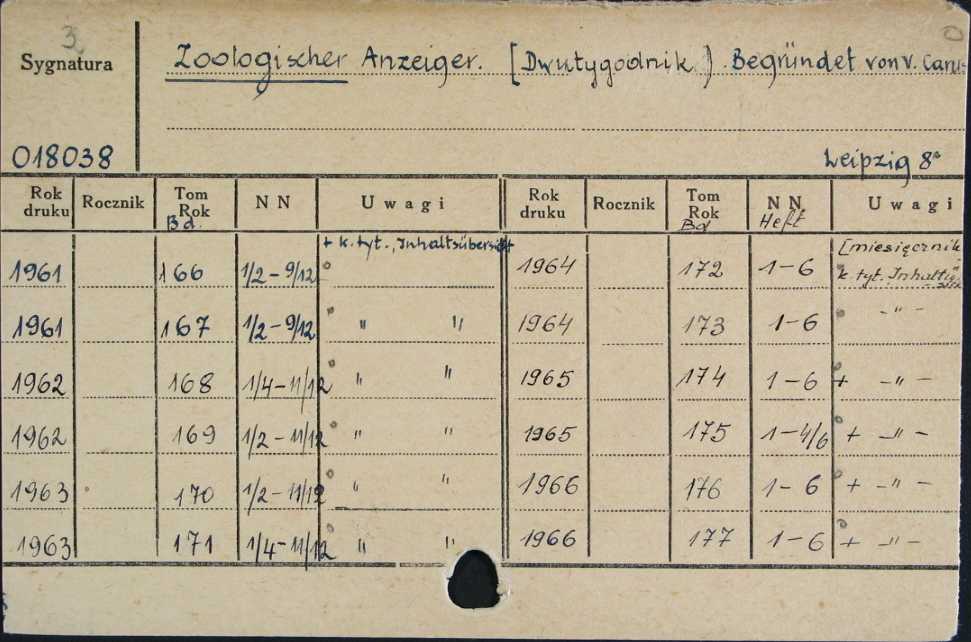 3
Sygnatura
Zoologischer Anzeiger. [Dwutygodnik.] Begründet von v. Carus
018038
Leipzig 8°
Rok druku Rocznik Tom Rok Bd. N N U w a g i Rok druku Rocznik Tom Rok Bd N N Heft U w a g i
+ k. tyt., Inhaltsübersicht [miesięcznik
1961 166 1/2-9/12 1964 172 1-6 k. tyt. Inhalts
1961 167 1/2-9/12 " " 1964 173 1-6 -"-
1962 168 1/4-11/12 " " 1965 174 1-6 + -"-
1962 169 1/2-11/12 " " 1965 175 1-4/6 + -"-
1963 170 1/2-11/12 " " 1966 176 1-6 + -"-
1963 171 1/4-11/12 " " 1966 177 1-6 + -"-